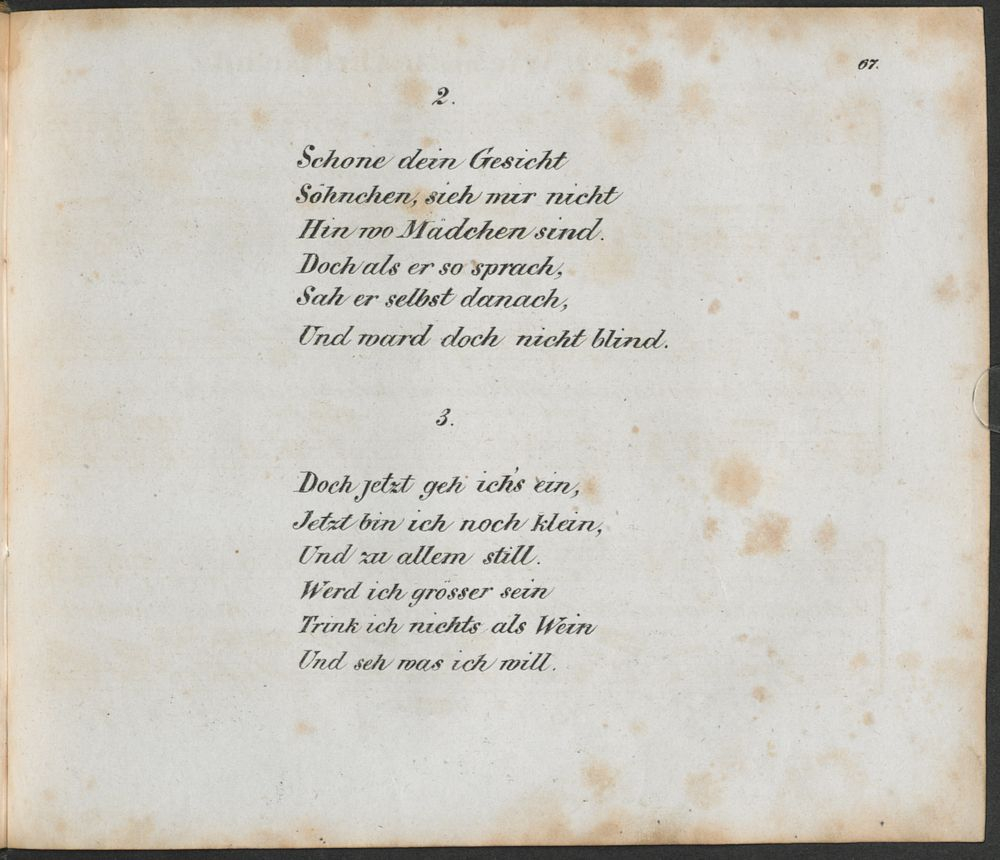 67.
2.
Schone dein Gesicht
Söhnchen, sieh mir nicht
Hin wo Mädchen sind.
Doch als er so sprach,
Sah er selbst danach,
Und ward doch nicht blind.
3.
Doch jetzt geh ich's ein,
Jetzt bin ich noch klein,
Und zu allem still.
Werd ich grösser sein
Trink ich nichts als Wein
Und seh was ich will.